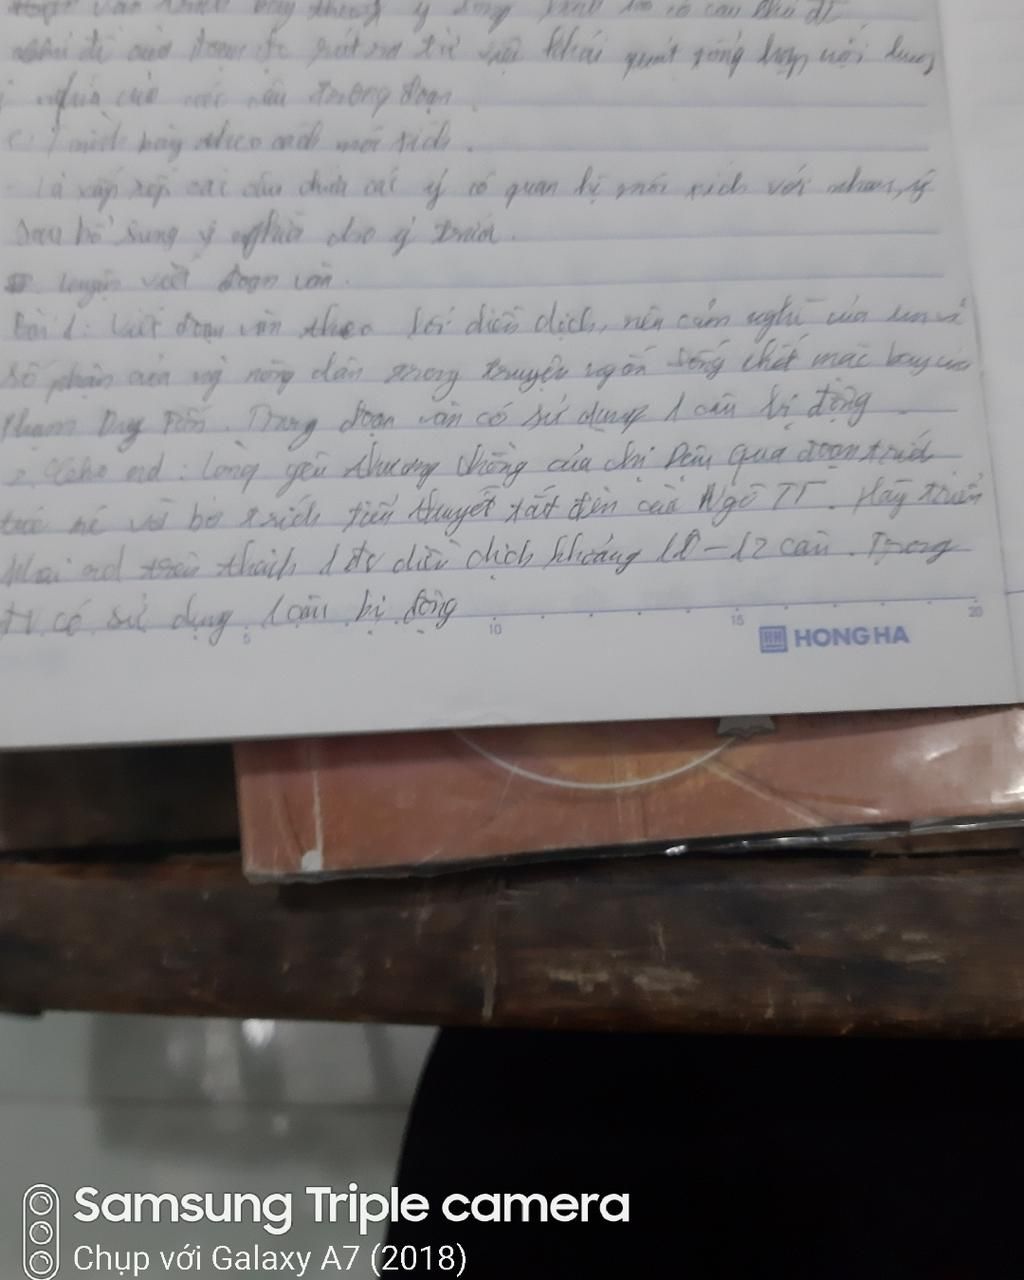 văn trình bày theo ý song
chủ đề của đoạn rút ra từ việc khái quát tổng hợp nội dung
nghĩa của các câu trong đoạn.
c) Trình bày theo cách móc xích.
- Là sắp xếp các câu chứa các ý có quan hệ móc xích với nhau, ý
sau bổ sung ý nghĩa cho ý trước.
II. Luyện viết đoạn văn.
Bài 1: Viết đoạn văn theo lối diễn dịch, nêu cảm nghĩ của em về
số phận của ng nông dân trong truyện ngắn sống chết mặc bay của
Phạm Duy Tốn. Trong đoạn văn có sử dụng 1 câu bị động.
2. Cho nd: lòng yêu thương chồng của chị Dậu qua đoạn trích
tức nc vỡ bờ trích tiểu thuyết tắt đèn của Ngô TT. Hãy triển
khai nd trên thành 1 đv diễn dịch khoảng 10-12 câu. Trong
đv có sử dụng 1 câu bị động
5 10 15 20
HONG HA
Samsung Triple camera
Chụp với Galaxy A7 (2018)